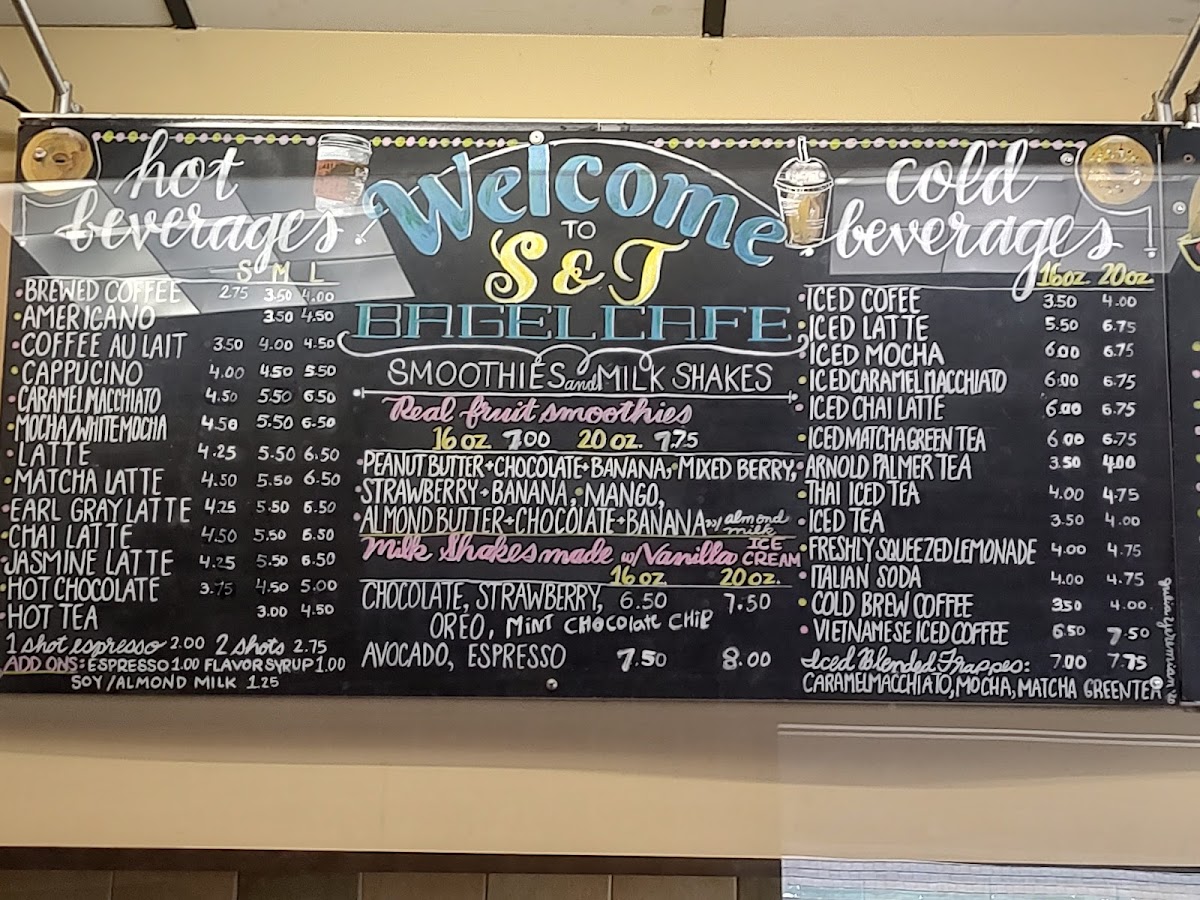 hot
beverages
S M L
BREWED COFFEE 2.75 3.50 4.00
AMERICANO 3.50 4.50
COFFEE AU LAIT 3.50 4.00 4.50
CAPPUCINO 4.00 4.50 5.50
CARAMEL MACCHIATO 4.50 5.50 6.50
MOCHA/WHITE MOCHA 4.50 5.50 6.50
LATTE 4.25 5.50 6.50
MATCHA LATTE 4.50 5.50 6.50
EARL GRAY LATTE 4.25 5.50 6.50
CHAI LATTE 4.50 5.50 6.50
JASMINE LATTE 4.25 5.50 6.50
HOT CHOCOLATE 3.75 4.50 5.00
HOT TEA 3.00 4.50
1 shot espresso 2.00 2 shots 2.75
ADD ONS: ESPRESSO 1.00 FLAVOR SYRUP 1.00
SOY/ALMOND MILK 1.25
Welcome
TO
S&T
BAGEL CAFE
SMOOTHIES and MILK SHAKES
Real fruit smoothies
16 oz 7.00 20 oz. 7.75
PEANUT BUTTER+CHOCOLATE+BANANA, MIXED BERRY,
STRAWBERRY+BANANA, MANGO,
ALMOND BUTTER+CHOCOLATE+BANANA w/ almond milk
Milk Shakes made w/ Vanilla ICE CREAM
16 oz 20 oz.
CHOCOLATE, STRAWBERRY, 6.50 7.50
OREO, MINT CHOCOLATE CHIP
AVOCADO, ESPRESSO 7.50 8.00
cold
beverages
16oz 20 oz
ICED COFEE 3.50 4.00
ICED LATTE 5.50 6.75
ICED MOCHA 6.00 6.75
ICED CARAMEL MACCHIATO 6.00 6.75
ICED CHAI LATTE 6.00 6.75
ICED MATCHA GREEN TEA 6.00 6.75
ARNOLD PALMER TEA 3.50 4.00
THAI ICED TEA 4.00 4.75
ICED TEA 3.50 4.00
FRESHLY SQUEEZED LEMONADE 4.00 4.75
ITALIAN SODA 4.00 4.75
COLD BREW COFFEE 3.50 4.00
VIETNAMESE ICED COFFEE 6.50 7.50
Iced Blended Frappes: 7.00 7.75
CARAMEL MACCHIATO, MOCHA, MATCHA GREEN TEA